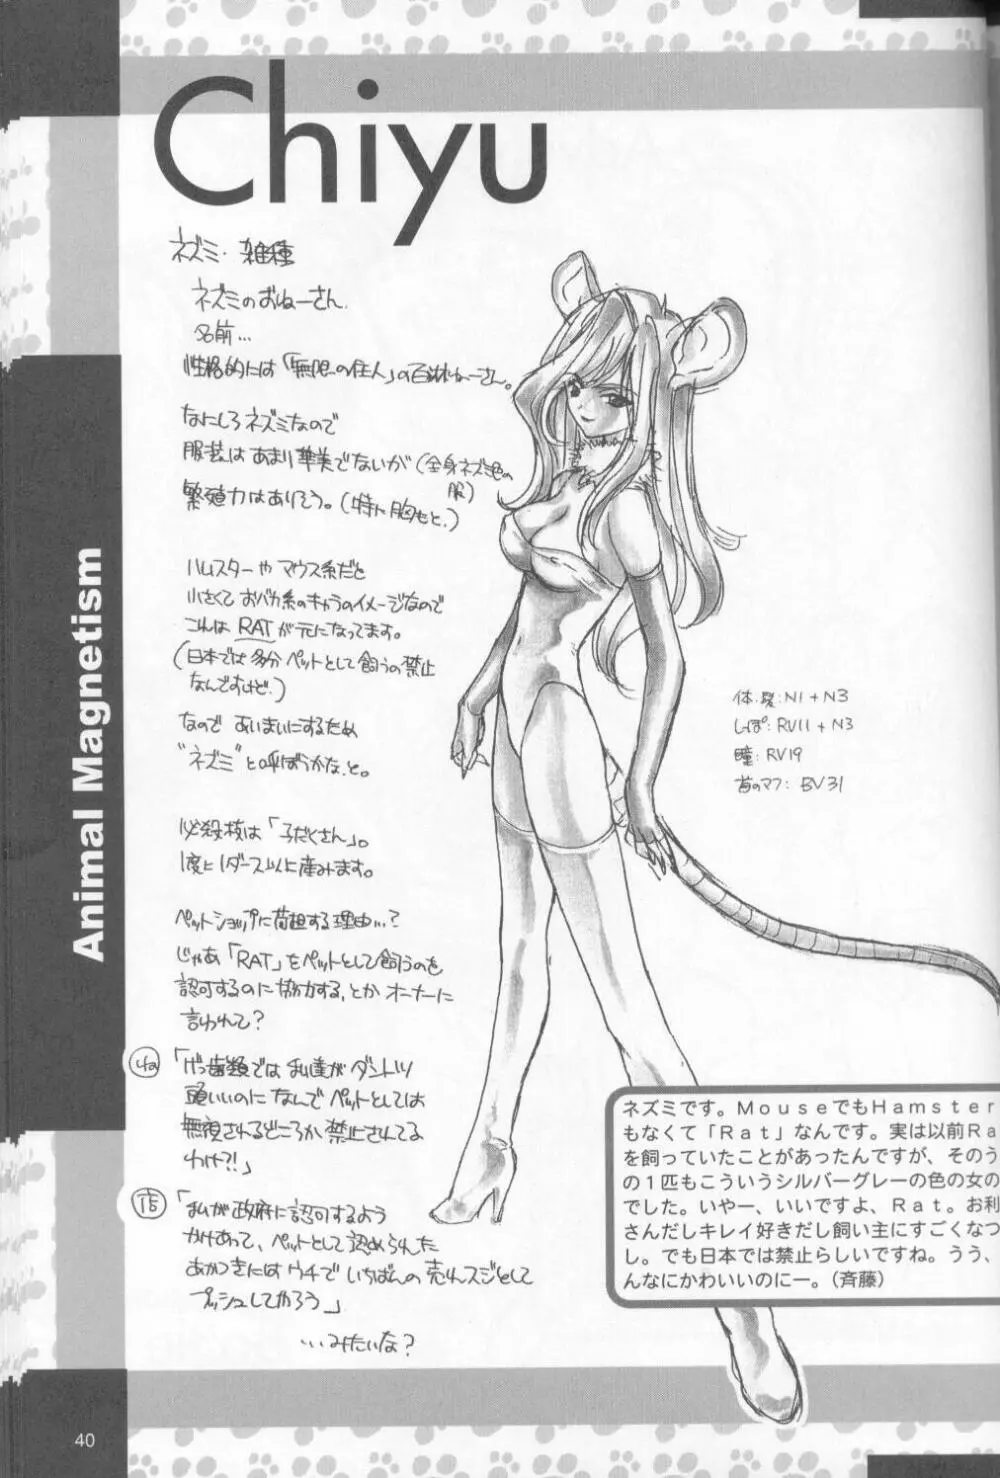 Chiyu
ネズミ・雑種
ネズミのおねーさん.
名前…
性格的には「無限の住人」の百淋ねーさん。
なにしろネズミなので
服装はあまり華美でないが(全身ネズミ色の
服)
繁殖力はありそう。(特に胸もと.)
ハムスターや マウス系だと
小さくて おバカ系のキャラのイメージなので
これは RATが元になってます。
(日本では多分 ペットとして飼うの禁止
なんですけど.)
なので あいまいにするため
"ネズミ"と呼ぼうかな、と。
必殺技は「子だくさん」。
1度に1ダース以上産みます。
ペットショップに荷担する理由…?
じゃあ「RAT」をペットとして飼うのを
認可するのに協力する、とか オーナーに
言われて?
ね「げっ歯類では 私達が ダントツ
頭いいのに なんで ペットとしては
無視されるどころか 禁止されてる
わけ?!」
店「私が政府に認可するよう
かけあって、ペットとして認められた
あかつきには ウチで いちばんの売れスジとして
プッシュしてやろう」
…みたいな?
体.髪:N1+N3
しっぽ:RV11+N3
瞳:RV19
首のマフ:BV31
ネズミです。MouseでもHamster
もなくて「Rat」なんです。実は以前Ra
を飼っていたことがあったんですが、そのう
の1匹もこういうシルバーグレーの色の女の
でした。いやー、いいですよ、Rat。お利
さんだしキレイ好きだし飼い主にすごくなつ
し。でも日本では禁止らしいですね。うう、
んなにかわいいのにー。(斉藤)
Animal Magnetism
40